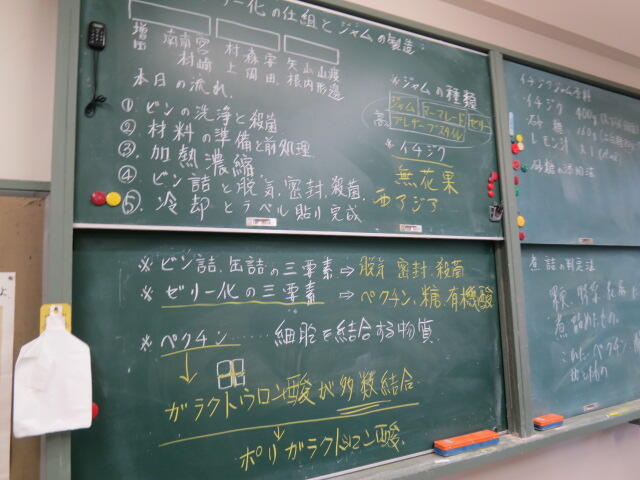 リー化の仕組とジャムの製造
増田 南村 南崎 宮
村上 森岡 宇田
矢根 山内 山形 渡邉
本日の流れ
① ビンの洗浄と殺菌
② 材料の準備と前処理
③ 加熱濃縮
④ ビン詰と脱気、密封、殺菌
⑤ 冷却とラベル貼り完成
※ジャムの種類
ジャム マーマレード ゼリー
プレザーブスタイル
※イチジク
無花果
西アジア
※ビン詰、缶詰の三要素⇒脱気 密封、殺菌
※ゼリー化の三要素⇒ペクチン、糖、有機酸
※ペクチン……細胞を結合する物質
↓
ガラクトウロン酸が多数結合
↓
ポリガラクトウロン酸
イチジクジャム材料
イチジク 400g
砂糖
レモン汁
砂糖の添加法
煮詰の判定法
果、野菜
煮詰めたもの
ペクチン